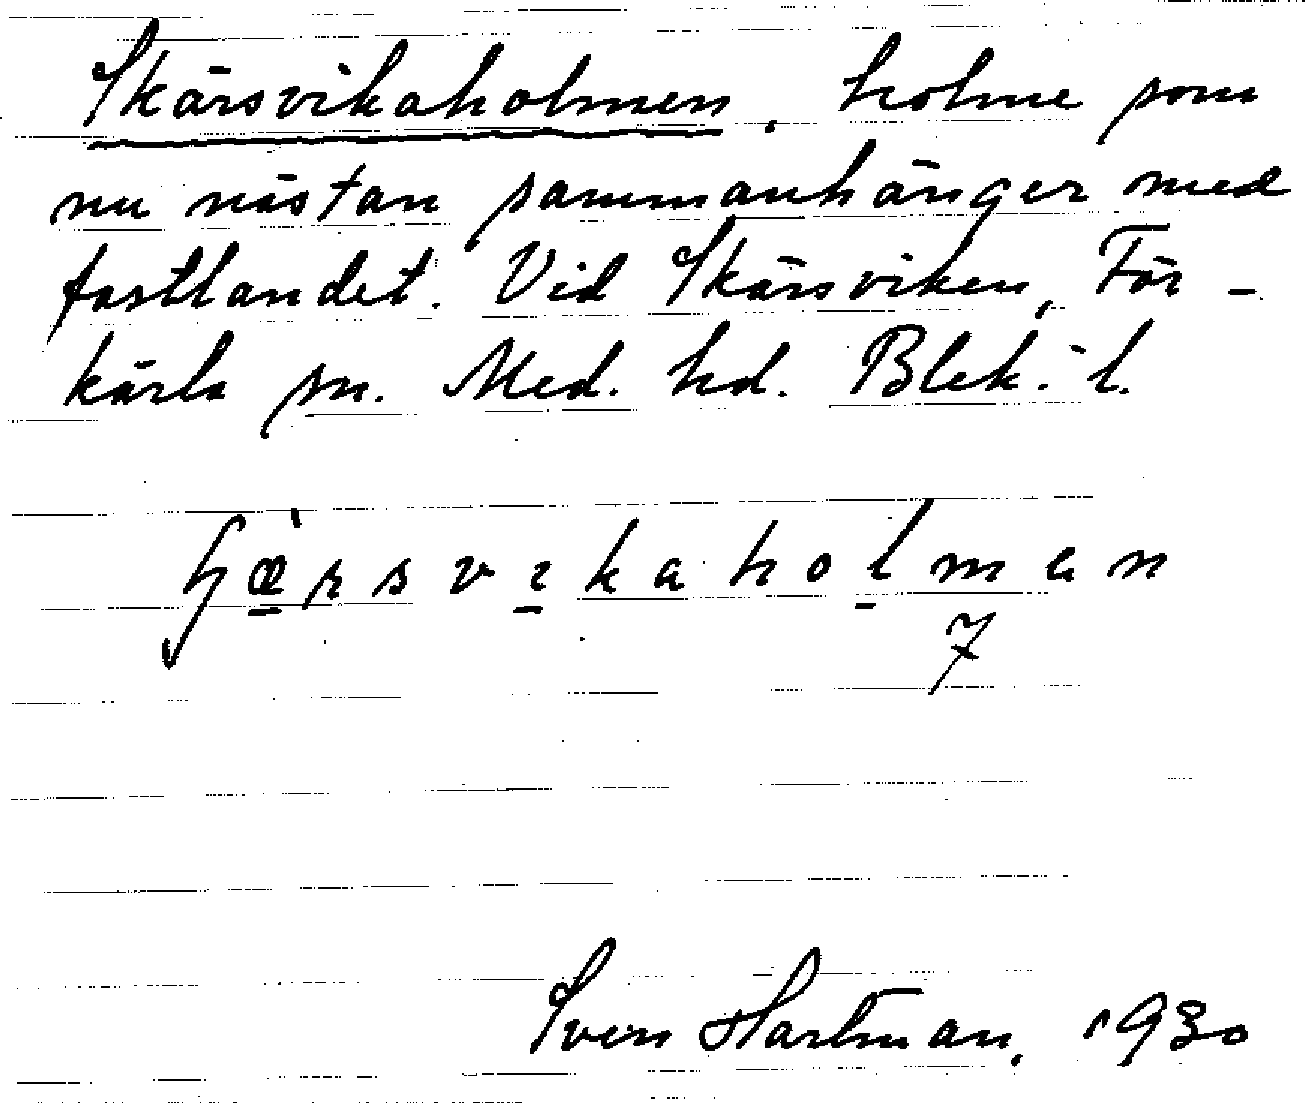 Skärsvikaholmen, holme som
nu nästan sammanhänger med
fastlandet. Vid Skärsviken, För-
kärla sn. Med. hd. Blek. l.
ɧæ̀rsvıkaholmen
7
Sven Hartman, 1930